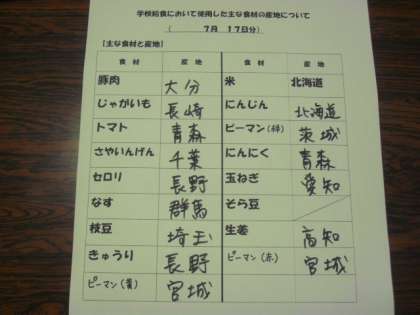 学校給食において使用した主な食材の産地について
( 7月 17日分)
【主な食材と産地】
食材 産地 食材 産地
豚肉 大分 米 北海道
じゃがいも 長崎 にんじん 北海道
トマト 青森 ピーマン(緑) 茨城
さやいんげん 千葉 にんにく 青森
セロリ 長野 玉ねぎ 愛知
なす 群馬 そら豆
枝豆 埼玉 生姜 高知
きゅうり 長野 ピーマン(赤) 宮城
ピーマン(黄) 宮城